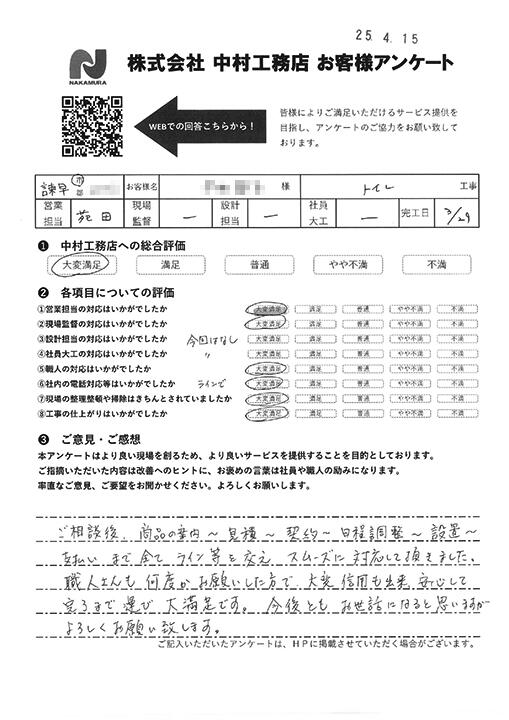 25. 4. 15
NAKAMURA
株式会社 中村工務店 お客様アンケート
WEBでの回答こちらから！
皆様によりご満足いただけるサービス提供を
目指し、アンケートのご協力をお願い致して
おります。
諫早 市 郡 お客様名 様 トイレ 工事
営業担当 苑田 現場監督 ー 設計担当 ー 社員大工 ー 完工日 3/29
❶ 中村工務店への総合評価
大変満足 満足 普通 やや不満 不満
❷ 各項目についての評価
①営業担当の対応はいかがでしたか 大変満足 満足 普通 やや不満 不満
②現場監督の対応はいかがでしたか 大変満足 満足 普通 やや不満 不満
③設計担当の対応はいかがでしたか 今回はなし 大変満足 満足 普通 やや不満 不満
④社員大工の対応はいかがでしたか 〃 大変満足 満足 普通 やや不満 不満
⑤職人の対応はいかがでしたか 大変満足 満足 普通 やや不満 不満
⑥社内の電話対応等はいかがでしたか ラインで 大変満足 満足 普通 やや不満 不満
⑦現場の整理整頓や掃除はきちんとされていましたか 大変満足 満足 普通 やや不満 不満
⑧工事の仕上がりはいかがでしたか 大変満足 満足 普通 やや不満 不満
❸ ご意見・ご感想
本アンケートはより良い現場を創るため、より良いサービスを提供することを目的としております。
ご指摘いただいた内容は改善へのヒントに、お褒めの言葉は社員や職人の励みになります。
率直なご意見、ご要望をお聞かせください。よろしくお願いします。
ご相談後、商品の案内～見積～契約～日程調整～設置～
支払いまで全てライン等を交え、スムーズに対応して頂きました。
職人さんも何度かお願いした方で、大変信用も出来、安心して
完了まで運び、大満足です。今後ともお世話になると思いますが
よろしくお願い致します。
ご記入いただいたアンケートは、HPに掲載させていただく場合がございます。